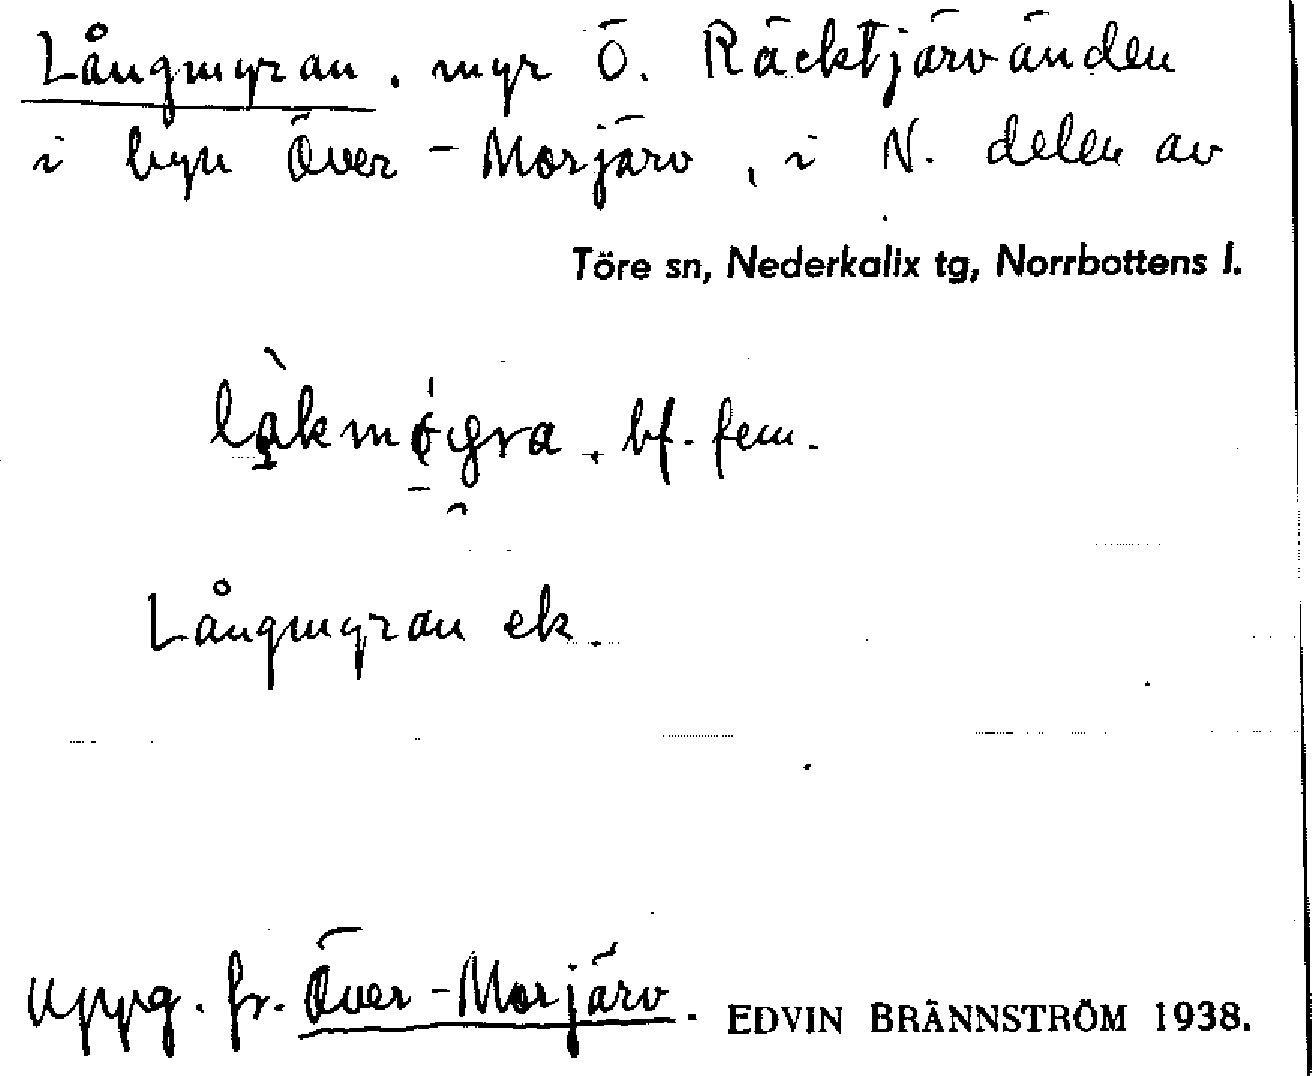 Långmyran. myr Ö. Räcktjärvänden
i byn Över-Morjärv, i N. delen av
Töre sn, Nederkalix tg, Norrbottens l.
bf. fem.
Långmyran ek.
Uppg. fr. Över-Morjärv. EDVIN BRÄNNSTRÖM 1938.